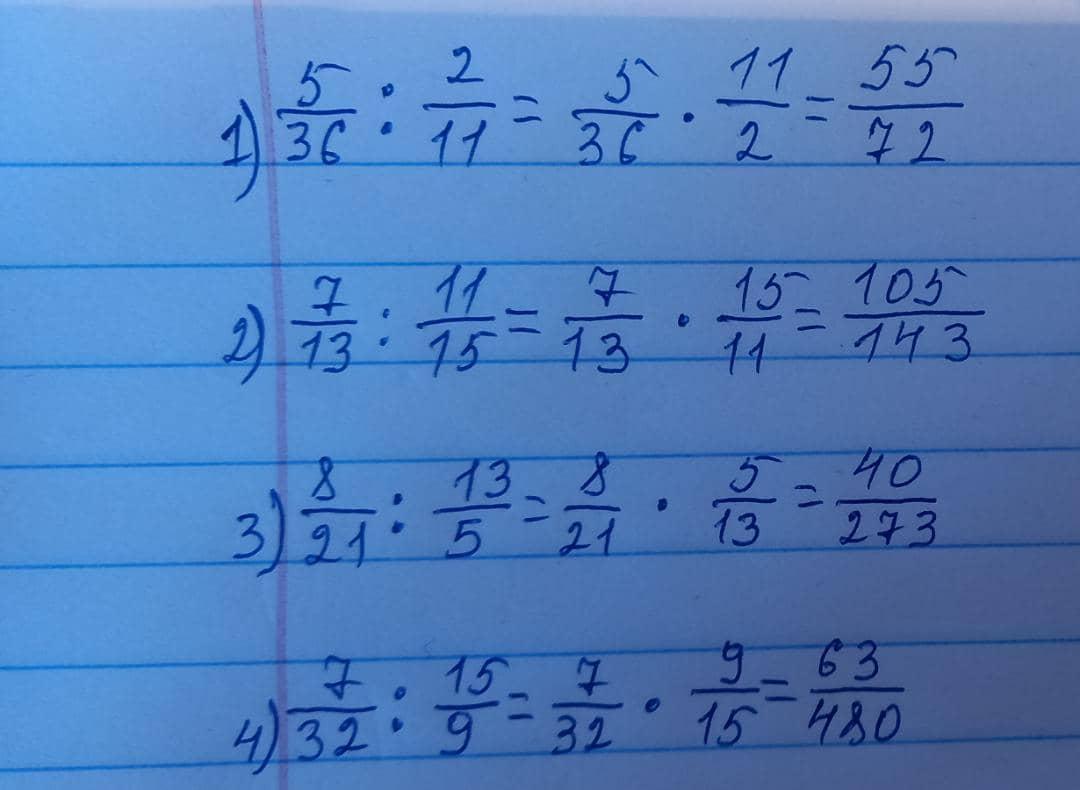 1) 5/36 : 2/11 = 5/36 · 11/2 = 55/72
2) 7/13 : 11/15 = 7/13 · 15/11 = 105/143
3) 8/21 : 13/5 = 8/21 · 5/13 = 40/273
4) 7/32 : 15/9 = 7/32 · 9/15 = 63/480